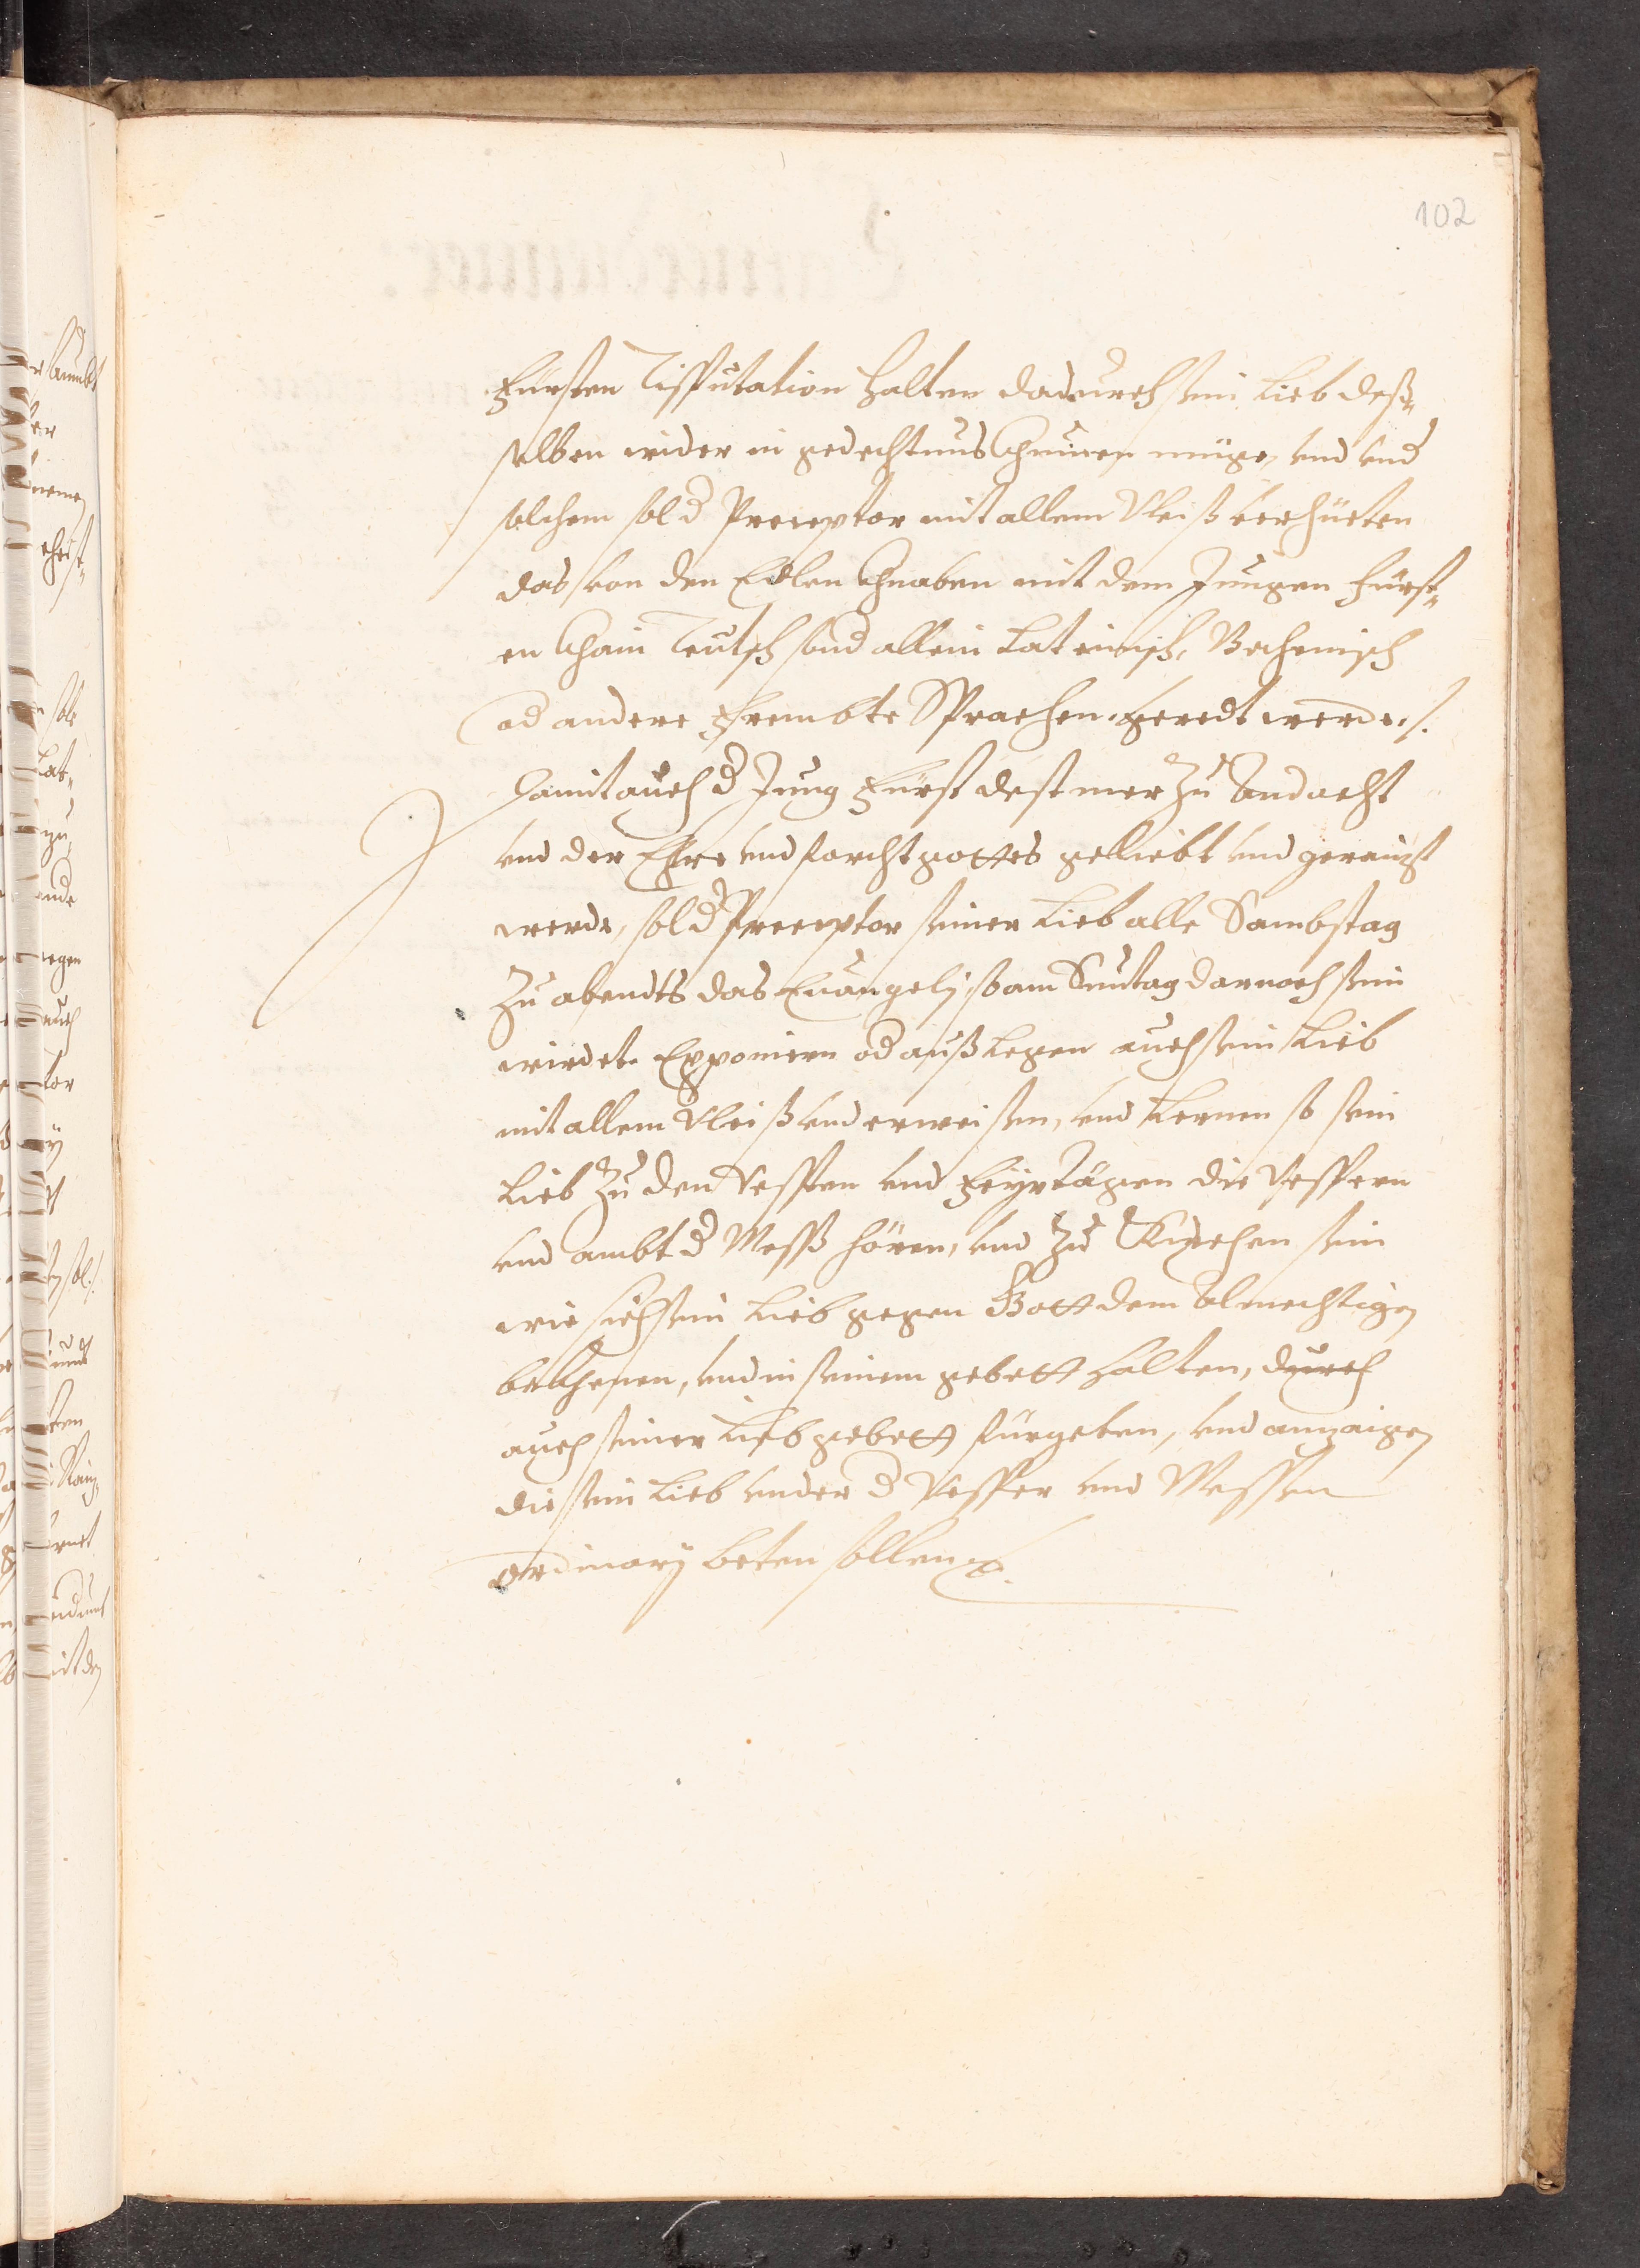 102
Fürsten Disputation halten dadurch sein Lieb deß¬
selben wider in gedechtnus khumen müge, vnd vnd
solchem sol d Preceptor mit allem Vleiß verhüeten
das von den Edlen Khnaben mit dem Jungen Fürst¬
en khain Teutsch sond allein Lateinisch, Behemisch
od andere Frembte Sprachen geredt werde ./.
Damit auch d Jung Fürst dest mer zu Andacht
vnd der Ehre vnd forcht gottes geliebt vnd geraitzt
werde, sol d Preceptor seiner Lieb alle Sambstag
zu abendts das Euangelj so am Suntag darnach sein
wirdet Exponiern od außlegen auch sein Lieb
mit allem Vleiß vnderweisen, vnd Lernen so sein
Lieb zu den Festen vnd Feyrtägen die Vespern
vnd ambt d Mess hören, vnd zu Kirchen sein
wie sich sein Lieb gegen Gott dem Almechtigen
bekhenen, vnd in seinem gebett halten, durch
auch seiner Lieb gebett fürgeben, vnd anzaigen
die sein Lieb vnder d Vesper vnd Messen
ordinarj beten sollen